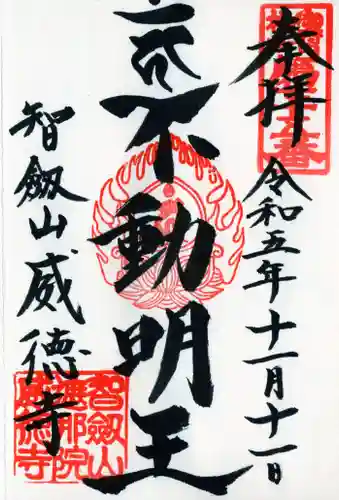 奉拝
令和五年十一月十一日
不動明王
智劔山威徳寺
智劔山
無那院
威徳寺